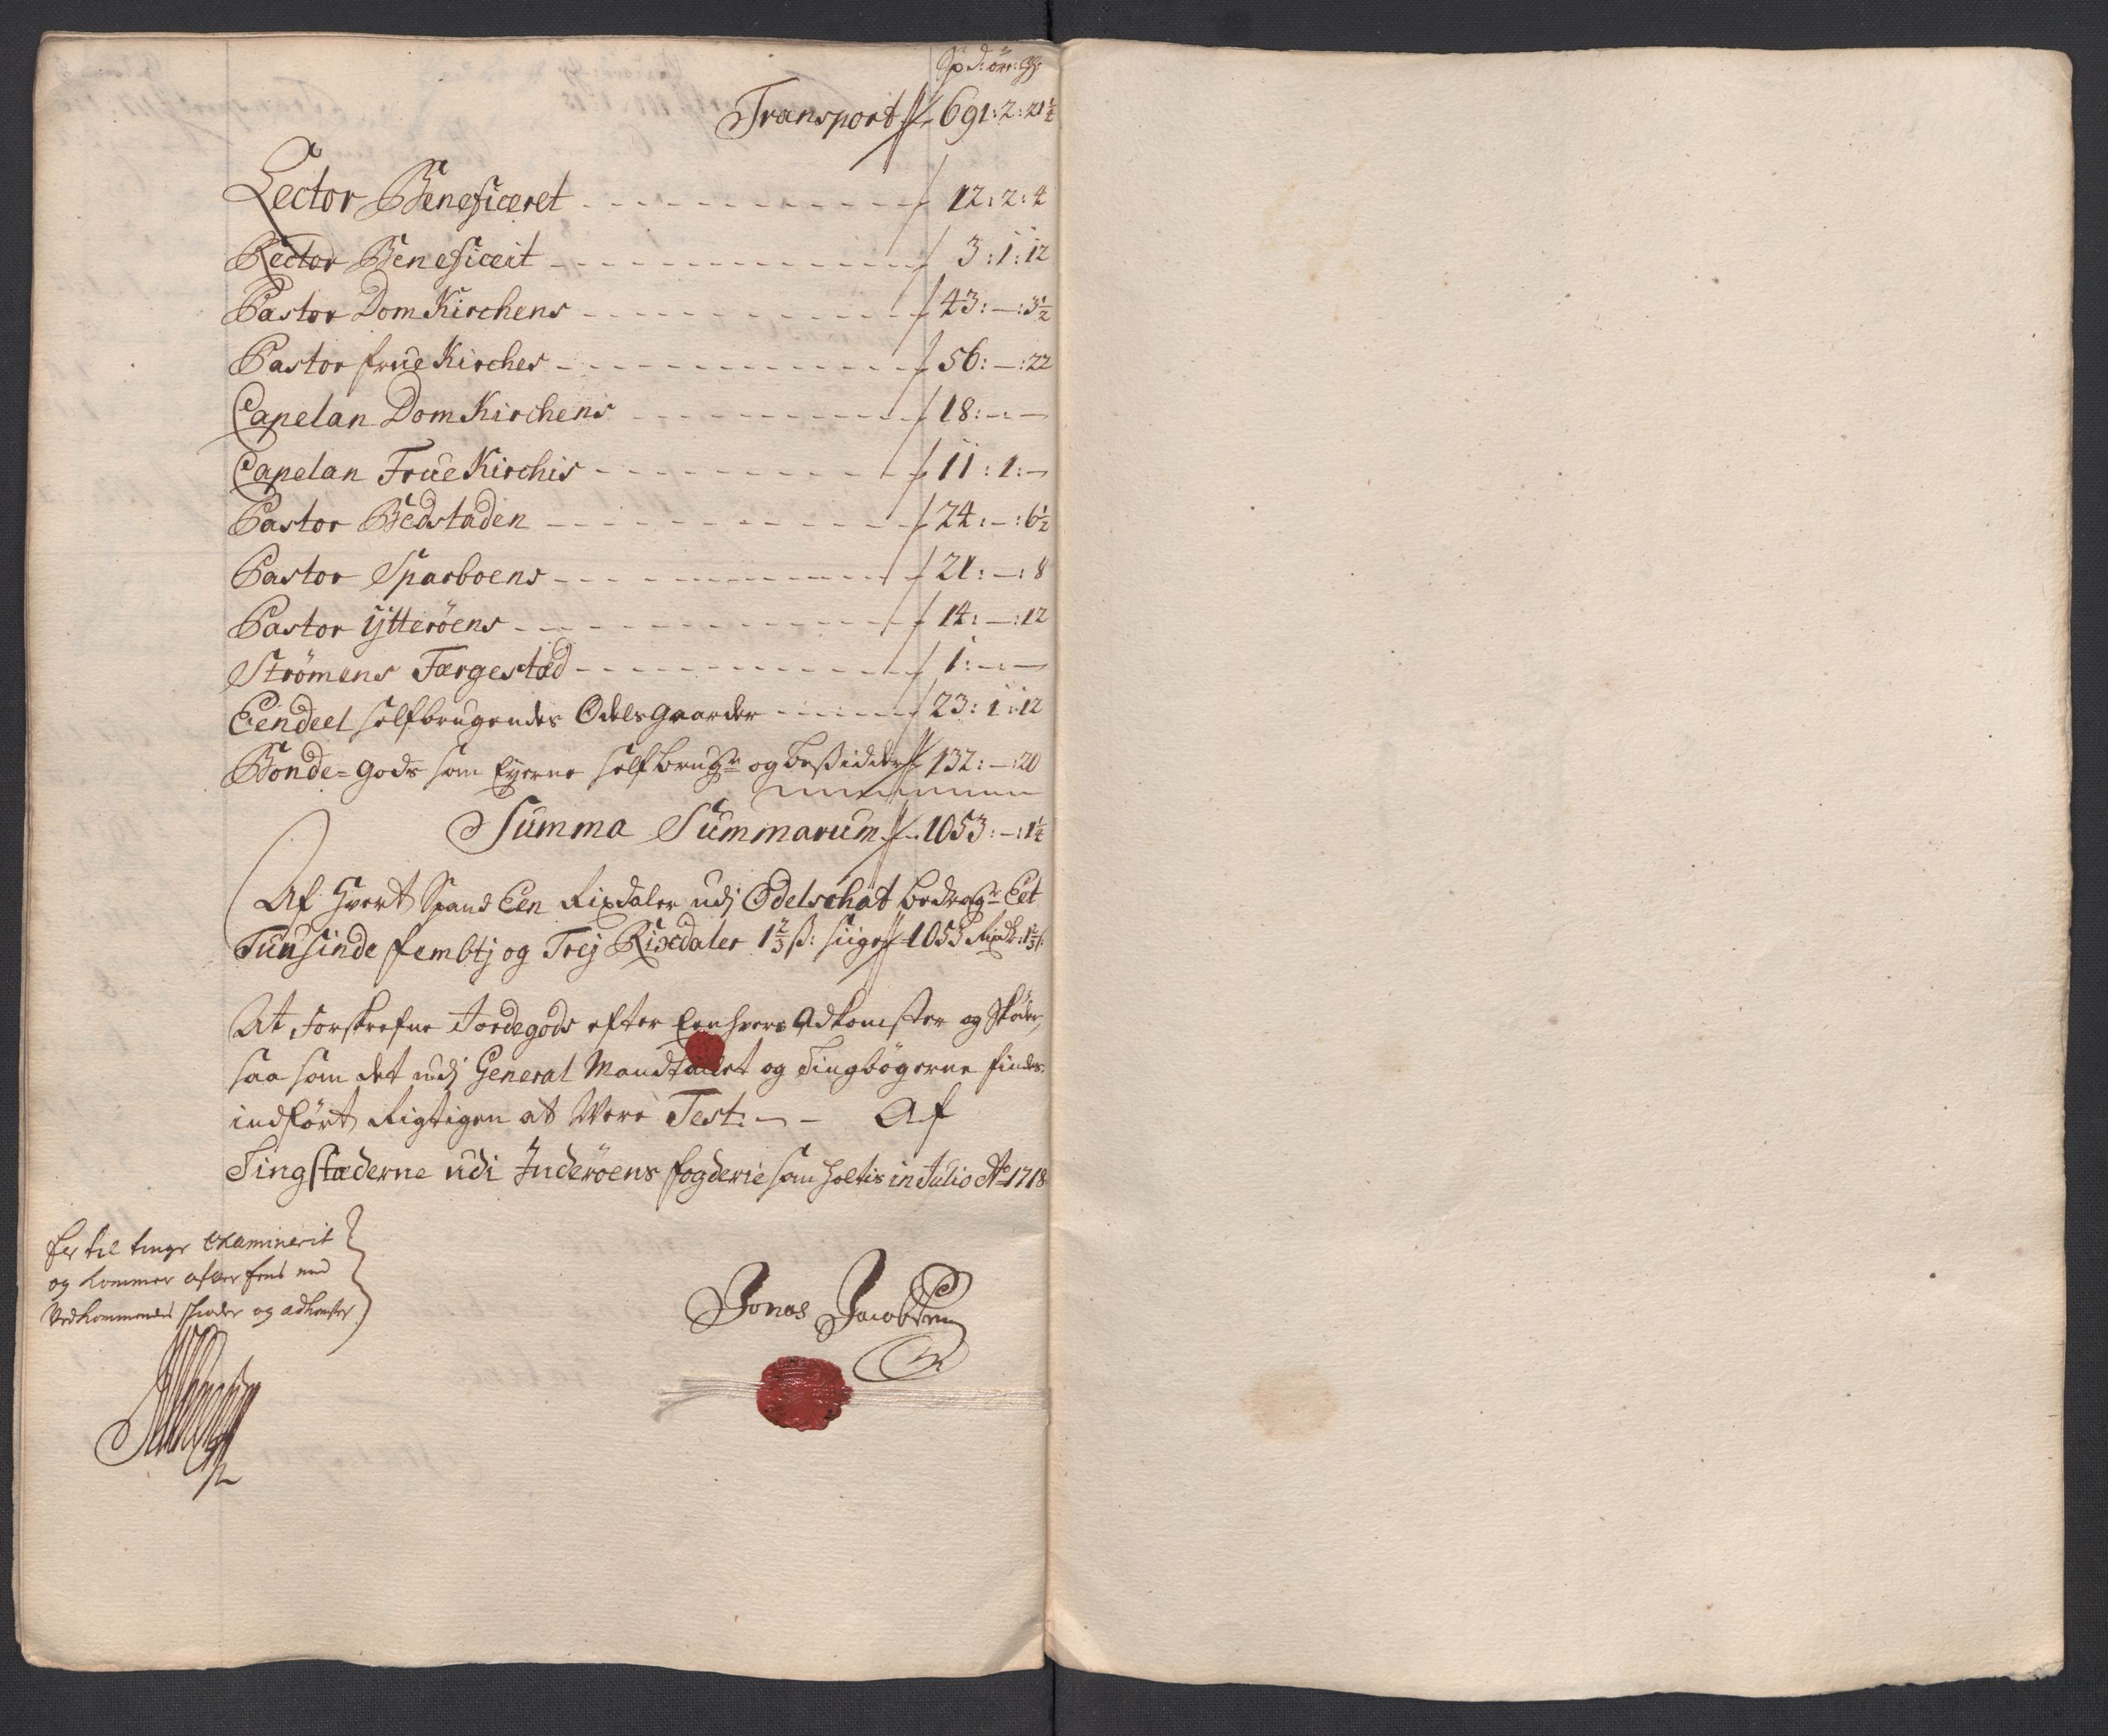 Spd: öre: ℔:
Transport 691:2:21¼
Lector Beneficeret 12:2:4
Rector Beneficeit 3:1:12
Pastor Dom Kirchens 43:—:3½
Pastor frue Kirches 56:—:22
Capelan Dom Kirchens 18:—:—
Capelan Frue Kirchis 11:1:—
Pastor Bedstaden 24:—:6½
Pastor Sparboens 21:—:8
Pastor ÿtteröens 14:—:12
Strömens Færgestæd 1:—:—
Eendeel selfbrugendes Odelsgaarder 23:1:12
Bonde=gods som Eyerne self brugr og besidder 132:—:20
Summa Summarum 1053:—:1¼
Af hvert Spand Een Rixdaler udj Odelschat bedragr Eet
Tuusinde fembtj og Trej Rixdaler 1⅔ ß: siiger 1053 Rixdr: 1⅔ ß:
At forskrefne Jordegods efter Eenhvers Adkomster og Skøder,
saa som det udj General Mandtallet og Tingbögerne findes
indfört Rigtigen at Were Test: — Af
Tingstæderne udi Inderöens fogderie som holtis in Julio Ao 1718
Er til tinge Examinerit
og kommer ofver Eens med
Vedkommendes skiøder og adkomster
Jonas Jacobsen